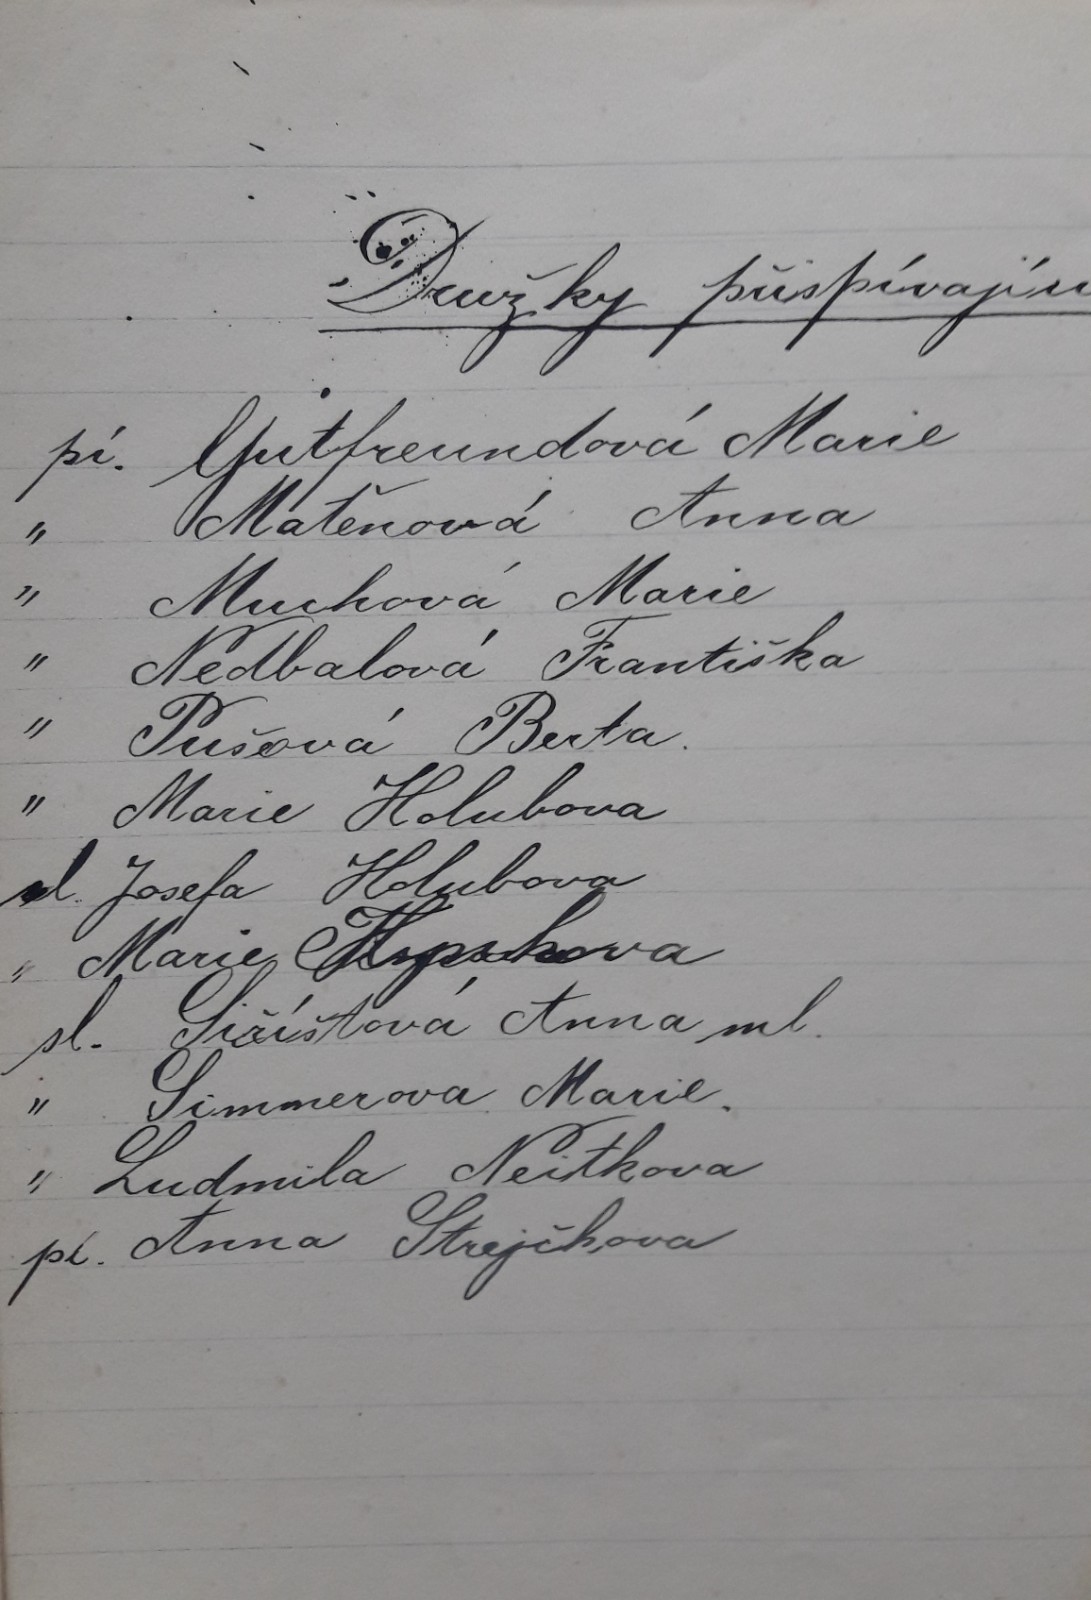 Družky přispívající
pí. Gutfreundová Marie
" Matěnová Anna
" Muchová Marie
" Nedbalová Františka
" Pušová Berta.
" Marie Holubova
sl. Josefa Holubova
" Marie
sl. Siřištová Anna ml.
" Simmerova Marie.
" Ludmila Neitkova
pí. Anna Strejčkova